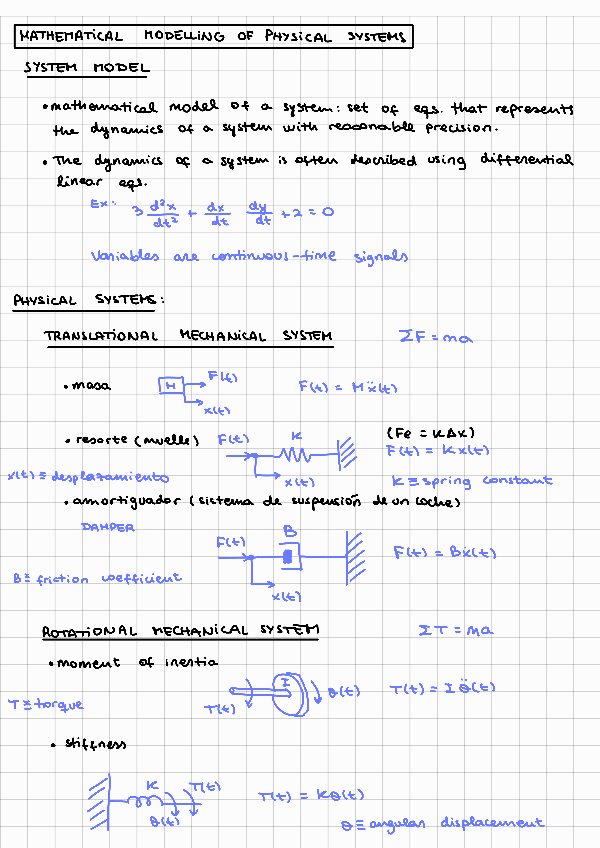 MATHEMATICAL MODELLING OF PHYSICAL SYSTEMS
SYSTEM MODEL
• mathematical model of a system: set of eqs. that represents
the dynamics of a system with reasonable precision.
• The dynamics of a system is often described using differential
linear eqs.
Ex: 3 d²x/dt² + dx/dt dy/dt + 2 = 0
Variables are continuous-time signals
PHYSICAL SYSTEMS:
TRANSLATIONAL MECHANICAL SYSTEM ΣF = ma
• masa M F(t) x(t) F(t) = Mẍ(t)
• resorte (muelle) F(t) K x(t) (Fe = KΔx)
F(t) = Kx(t)
x(t) ≡ desplazamiento K ≡ spring constant
• amortiguador (sistema de suspensión de un coche)
DAMPER F(t) B x(t) F(t) = Bẋ(t)
B ≡ friction coefficient
ROTATIONAL MECHANICAL SYSTEM ΣT = ma
• moment of inertia
T(t) I θ(t) T(t) = I θ̈(t)
T ≡ torque
• stiffness
K T(t) θ(t) T(t) = Kθ(t)
θ ≡ angular displacement